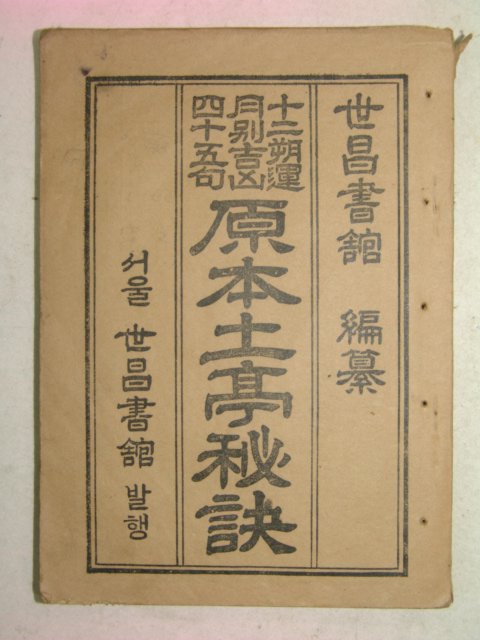 世昌書舘 編纂
十二朔運
月别吉凶
四十五句
原本土亭秘訣
서울 世昌書舘 발행